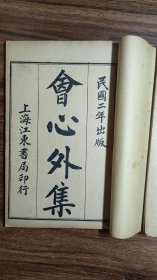 民國二年出版
會心外集
上海江東書局印行